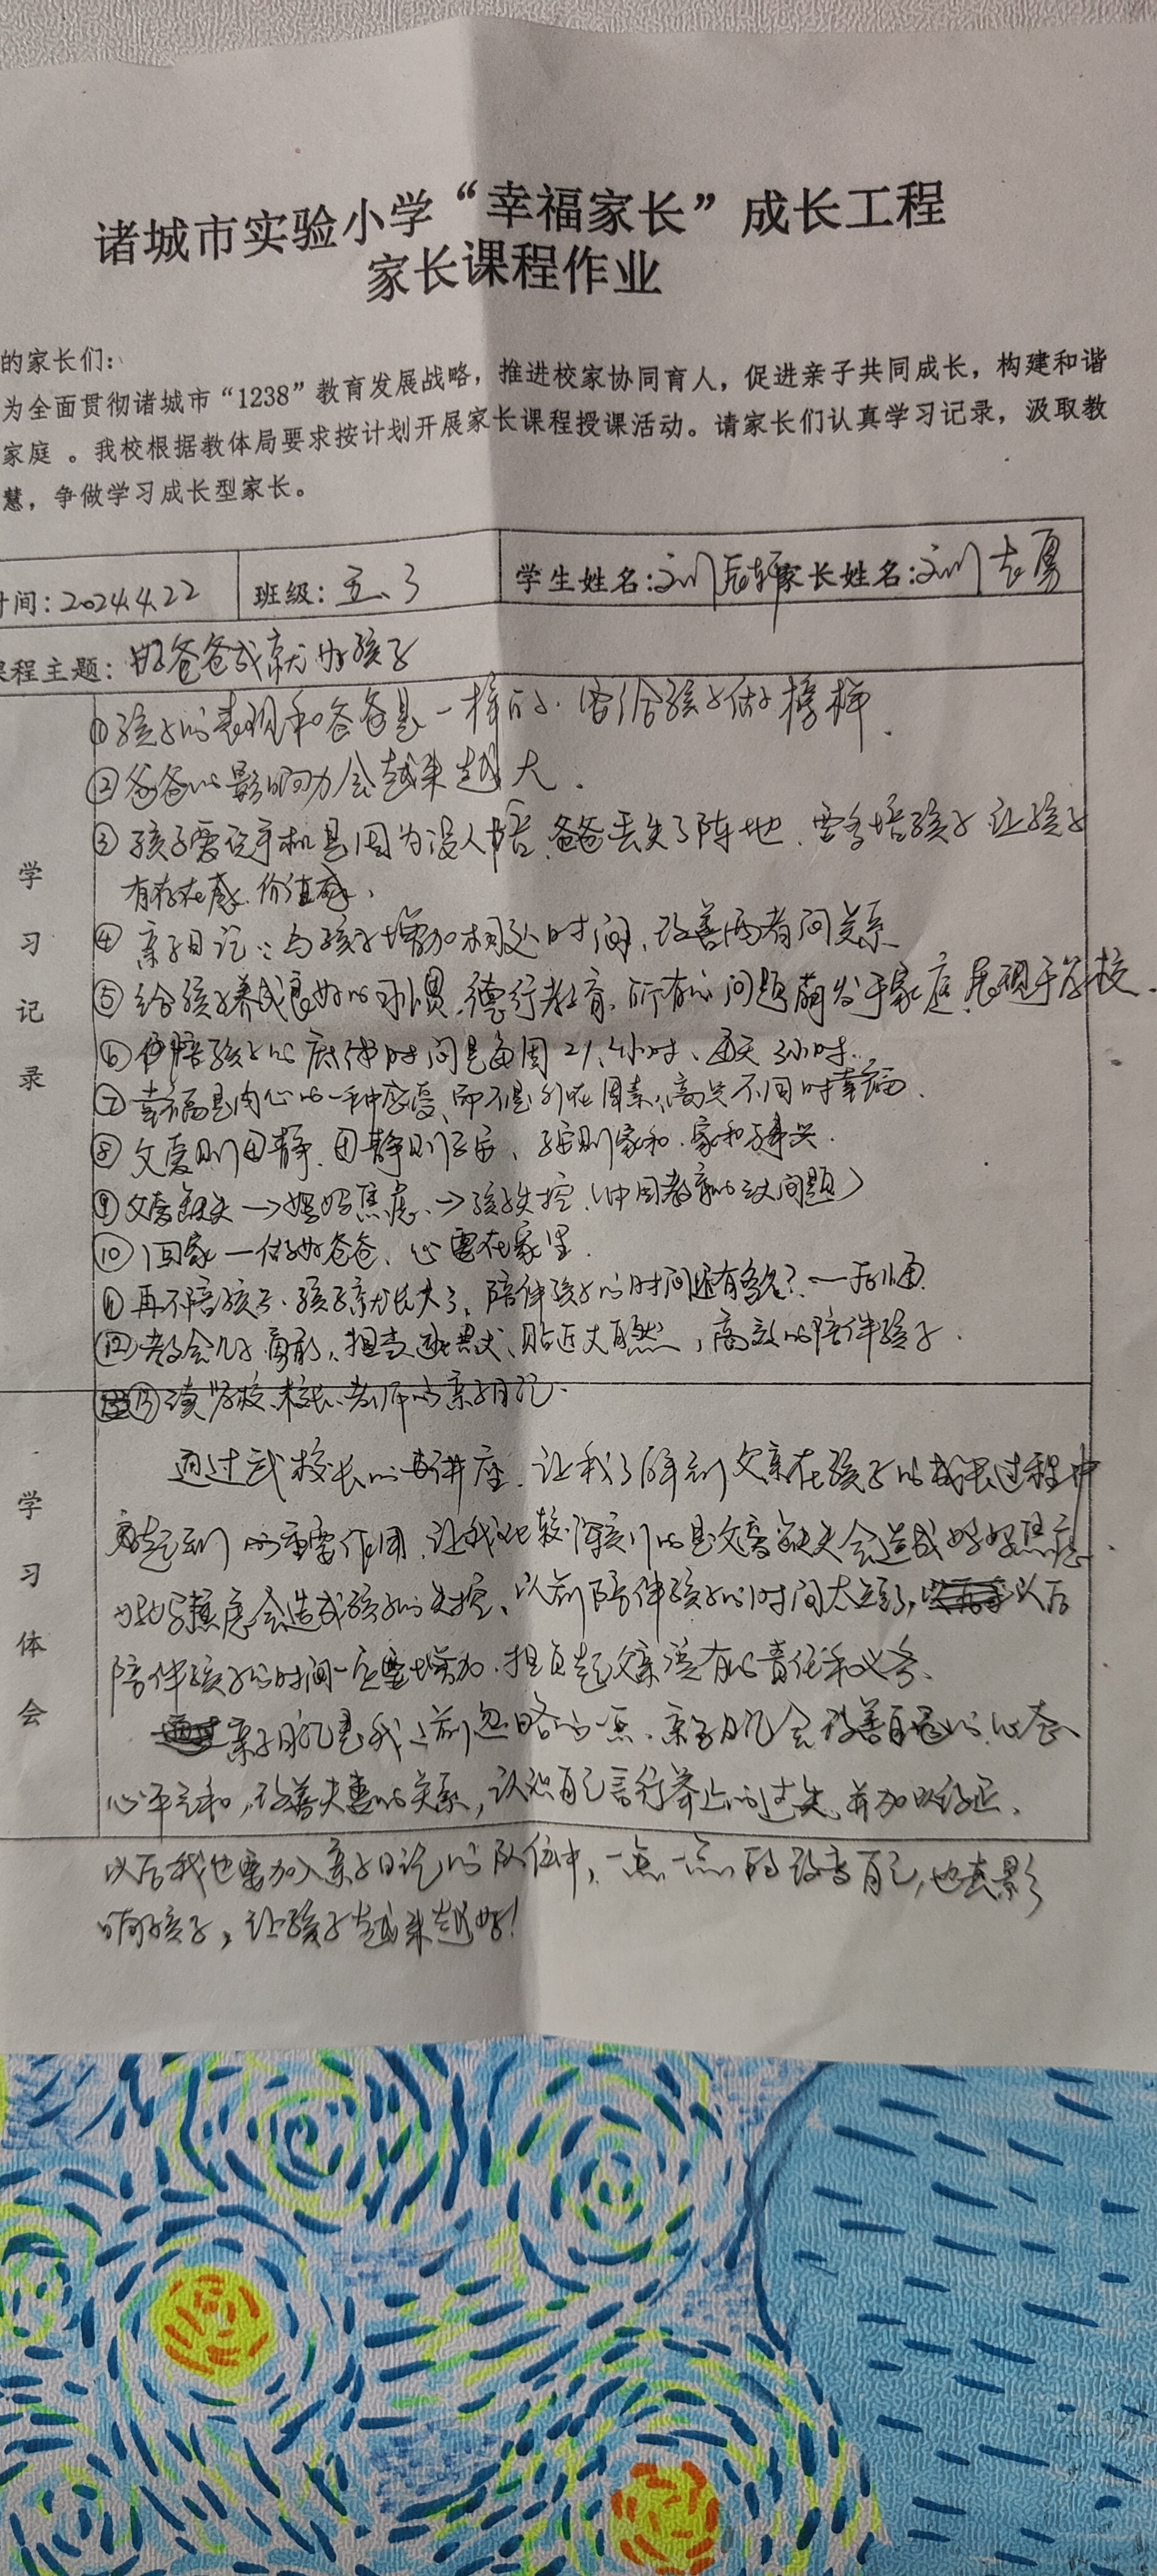 诸城市实验小学“幸福家长”成长工程
家长课程作业
的家长们：
为全面贯彻诸城市“1238”教育发展战略，推进校家协同育人，促进亲子共同成长，构建和谐
家庭 。我校根据教体局要求按计划开展家长课程授课活动。请家长们认真学习记录，汲取教
慧，争做学习成长型家长。
时间：2024.4.22 班级：五、3 学生姓名：刘 家长姓名：刘志勇
课程主题：好爸爸成就好孩子
学习记录
①孩子的表现和爸爸是一样的、要给孩子做榜样.
②爸爸的影响力会越来越大.
③孩子要玩手机是因为没人陪、爸爸丢失了阵地、要多陪孩子 让孩子
有存在感、价值感、
④亲子日记：与孩子增加相处时间、改善两者间关系
⑤给孩子养成良好的习惯、德行教育、所有的问题萌发于家庭、展现于学校.
⑥陪孩子的底线时间是每周21个小时、每天3小时.
⑦幸福是内心的一种感受、而不是外在因素、高兴不同时幸福.
⑧父爱则母静、母静则子安、子安则家和、家和事兴.
⑨父爱缺失→妈妈焦虑、→孩子失控、(中国教育的三大问题)
⑩回家一做好爸爸、心要在家里.
⑪再不陪孩子、孩子就长大了、陪伴孩子的时间还有多少？
⑫教会儿子勇敢、担当、贴近大自然，高效的陪伴孩子.
⑬读学校、校长、老师的亲子日记.
学习体会
通过武校长的讲座、让我了解到父亲在孩子的成长过程中
起到的重要作用、让我比较深刻的是父爱缺失会造成妈妈焦虑、
妈妈焦虑会造成孩子的失控、以前陪伴孩子的时间太短了，以后
陪伴孩子的时间一定要增加、担负起父亲该有的责任和义务、
亲子日记是我之前忽略的一点、亲子日记会改善自己的心态、
心平气和，改善夫妻的关系，认识自己言行举止的过失、并加以纠正、
以后我也要加入亲子日记的队伍中，一点一点的改变自己，也去影
响孩子，让孩子越来越好！